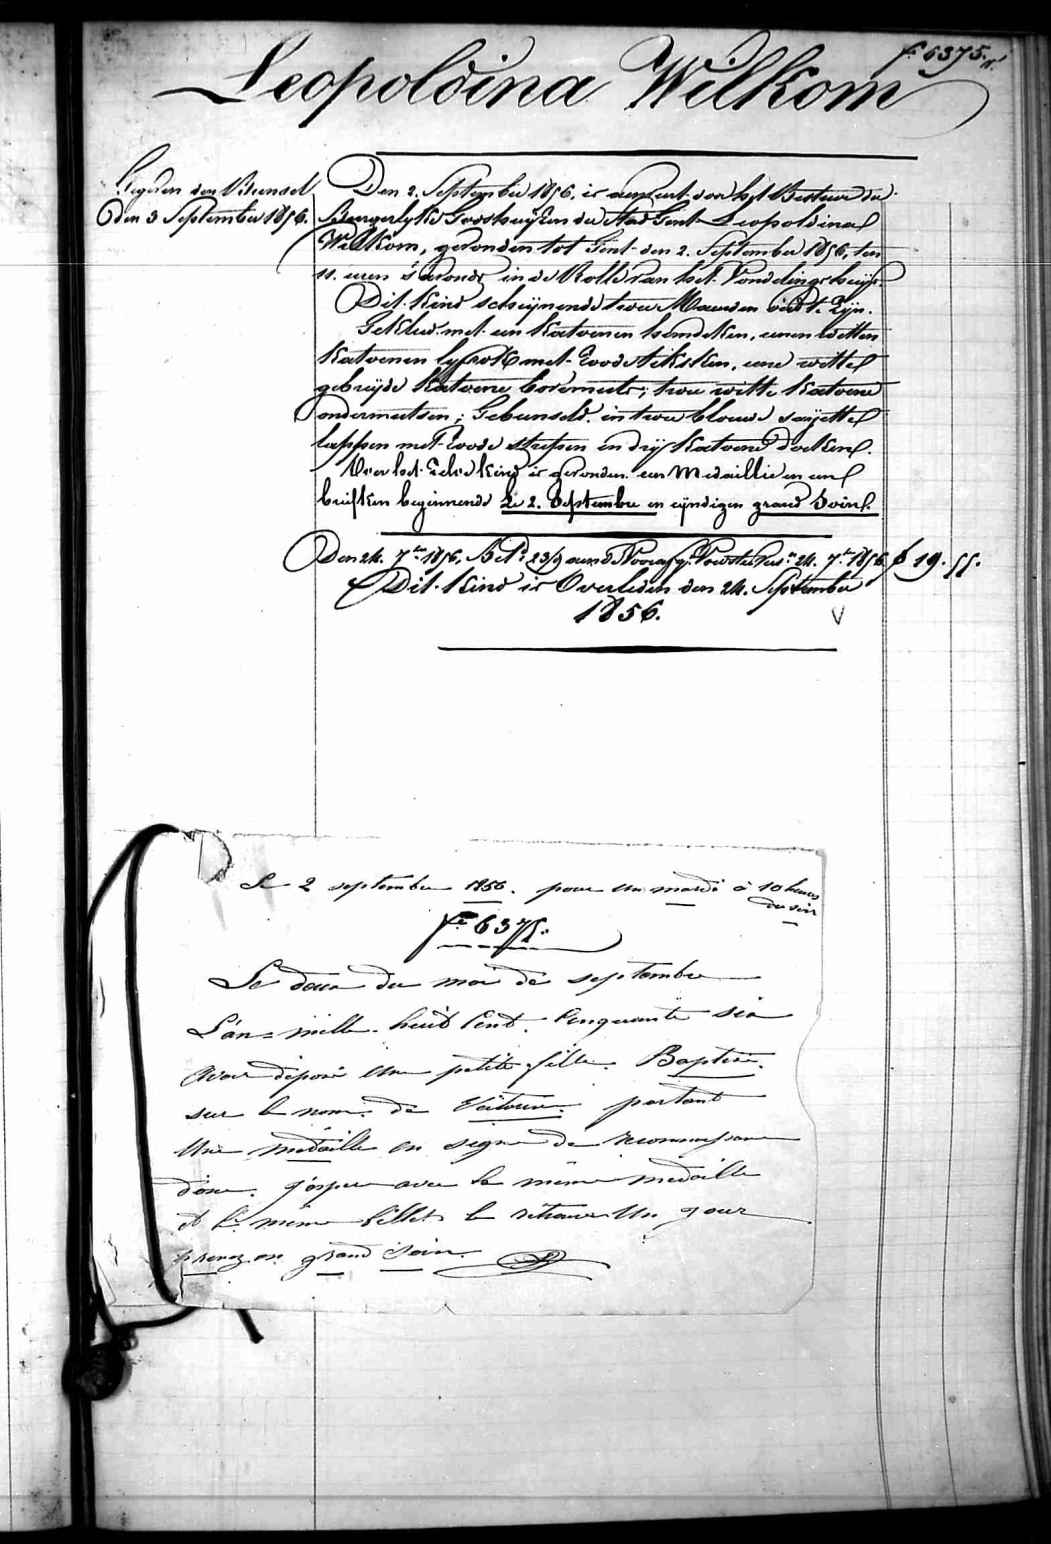 fo 6375.
Leopoldina Wilkom
den 3 September 1856.
Den 2. September 1856, is aenveert door het Bestuer der
Burgerlyke Godshuijzen der Stad Gent Leopoldina
Wilkom, gevonden tot Gent den 2. September 1856, ten
11. uren 's avonds in de Rolle van het Vondelingshuijs.
Dit kind schijnende twee Maenden oud te zijn.
Gekleed met een katoenen hemdeken, eenen witten
katoenen lyfrok met roode stekskens, eene witte
gebreijde katoene bovenmuts; twee witte katoene
ondermutsen; Gebunseld in twee blauwe saijette
lappen met roode strepen en drij katoene doeken.
Voor het zelve kind is gevonden een Medaillie en een
briefken beginnende Le 2. Septembre en eyndigen grand Soin.
Den 24. 7bre 1856, 24. 7bre 1856 19. 55.
Dit kind is Overleden den 24. September
1856.
Le 2 septembre 1856. pour un mardi à 10 heures
du soir
fo 6375.
Le deux du moi de septembre
L'an mille huit Cent Cinquante six
avoir déposé une petite fille. Baptisé
sur le nom de portant
une médaille en signe de reconnaissance
donc. j'espere avec la même médaille
et le même billet le retrouve un jour
prenez en grand soin.